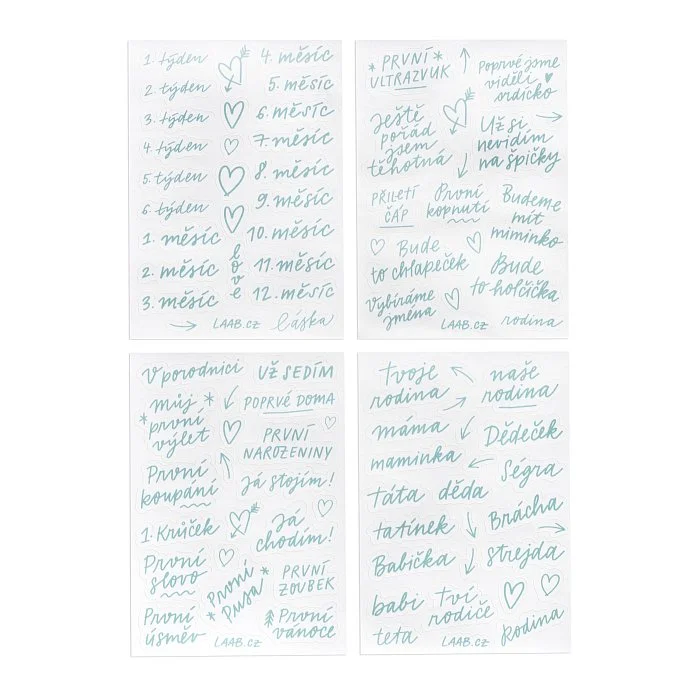 1. týden
2. týden
3. týden
4. týden
5. týden
6. týden
1. měsíc
2. měsíc
3. měsíc
love
4. měsíc
5. měsíc
6. měsíc
7. měsíc
8. měsíc
9. měsíc
10. měsíc
11. měsíc
12. měsíc
LAAB.CZ
láska
* PRVNÍ *
ULTRAZVUK
Poprvé jsme
viděli
srdíčko
Ještě
pořád
jsem
těhotná
Už si
nevidím
na špičky
PŘILETÍ
ČÁP
První
kopnutí
Budeme
mít
miminko
Bude
to chlapeček
Bude
to holčička
Vybíráme
jména
LAAB.CZ
rodina
V porodnici
UŽ SEDÍM
* můj *
první
výlet
POPRVÉ DOMA
PRVNÍ
NAROZENINY
První
koupání
Já stojím!
1. Krůček
Já
chodím!
První
slovo
První *
* Pusa
PRVNÍ
ZOUBEK
První
úsměv
První
vánoce
LAAB.CZ
tvoje
rodina
naše
rodina
máma
Dědeček
maminka
Ségra
táta
děda
Brácha
tatínek
Babička
strejda
babi
tví
rodiče
teta
LAAB.CZ
Rodina